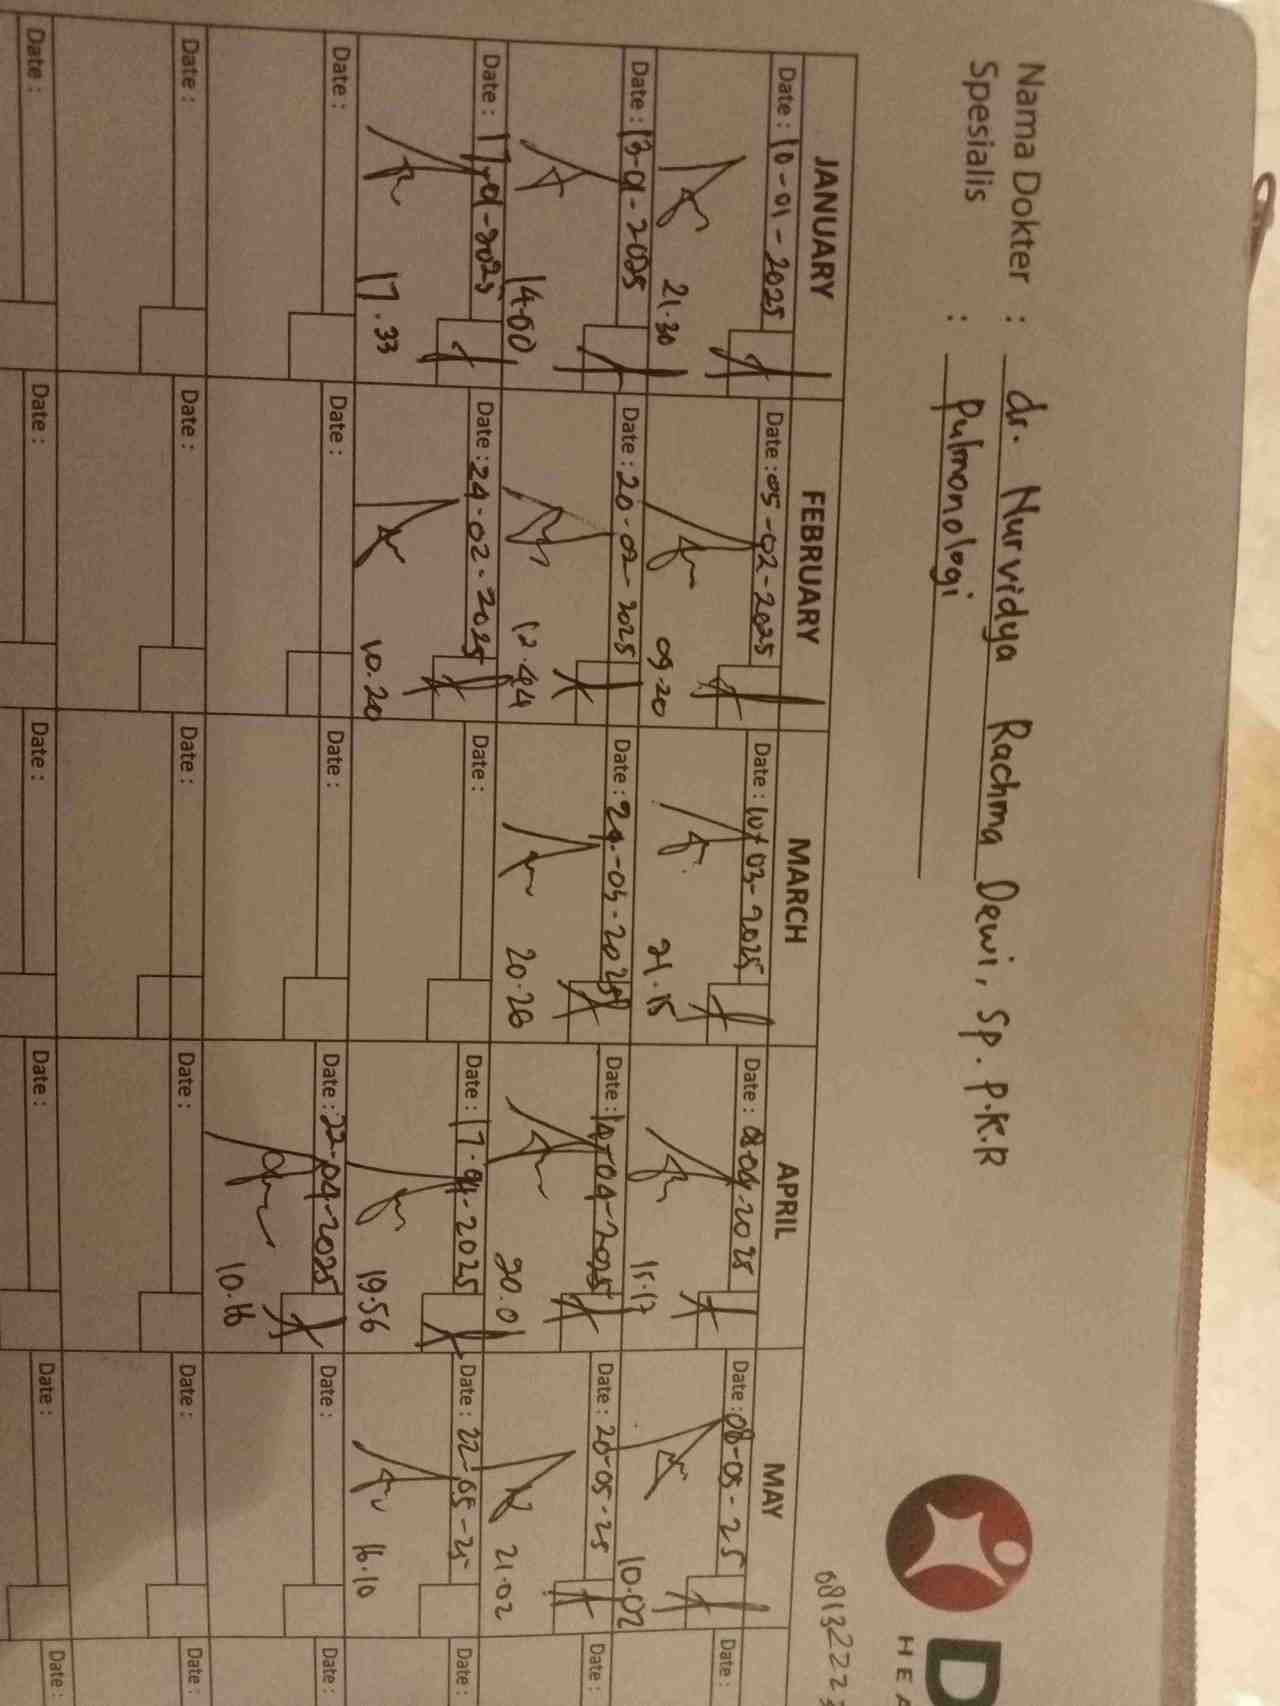 Nama Dokter : dr. Nurvidya Rachma Dewi, Sp. P.K.R
Spesialis : Pulmonologi
D
HEA
JANUARY FEBRUARY MARCH APRIL MAY
Date : 10-01-2025 Date : 05-02-2025 Date : 10-03-2025 Date : 08-04-2025 Date : 08-05-25 Date :
21.30 09.20 21.15 15.17 10.02
Date : 13-01-2025 Date : 20-02-2025 Date : 24-03-2025 Date : 14-04-2025 Date : 20-05-25 Date :
14.00 12.44 20.26 20.01 21.02
Date : 17-01-2025 Date : 24-02-2025 Date : Date : 17-04-2025 Date : 22-05-25 Date :
17.33 10.20 19.56 16.10
Date : Date : Date : Date : 22-04-2025 Date : Date :
10.16
Date : Date : Date : Date : Date : Date :
Date : Date : Date : Date : Date : Date :